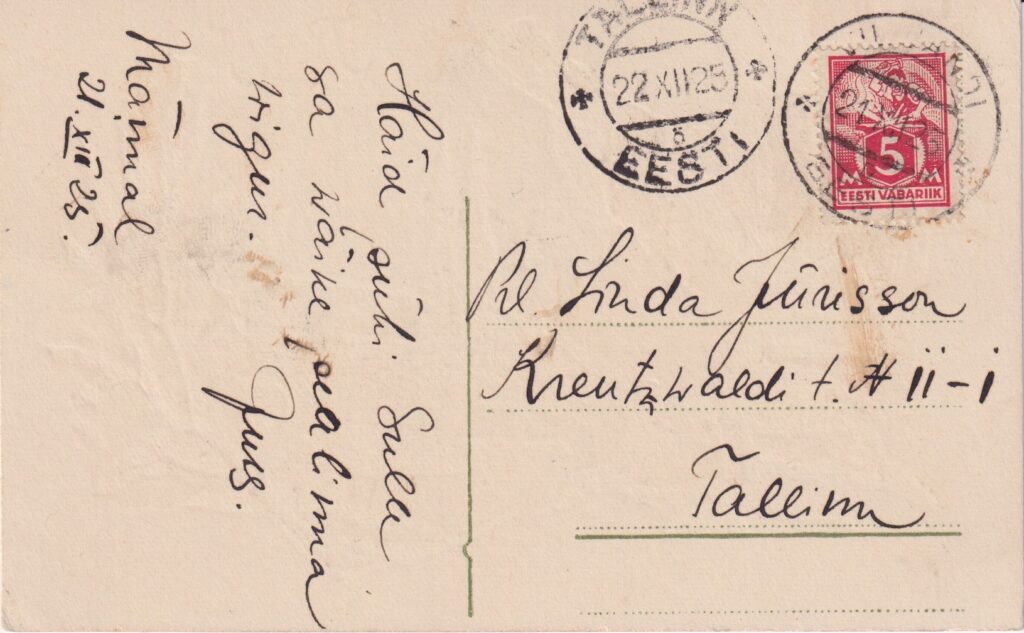 TALLINN
22 XII 25
5
EESTI
21.XII
EESTI
5
M M
EESTI VABARIIK
Häid pühi Sulle
sa wäike pealinna
wigur.
Juss.
21.XII 25.
Prl Linda Jürisson
Kreutzwaldi t. № 11-1
Tallinn